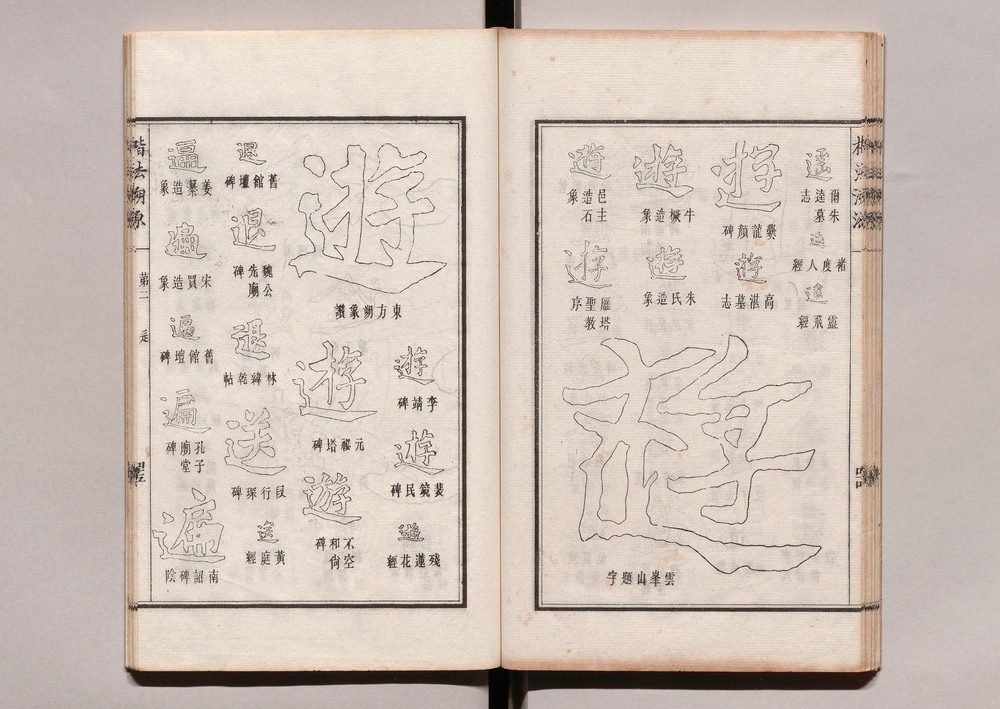 遙
爾朱逵墓志
遙
褚度人經
靈飛經
遊
爨龍顏碑
遊
高湛墓志
遊
牛橛造象
遊
朱氏造象
遊
邑主造石象
遊
雁塔聖教序
遊
雲峯山題字
遊
東方朔象讚
遊
李靖碑
遊
裴鏡民碑
遊
殘蓮花經
遊
元祕塔碑
遊
不空和尚碑
退
舊館壇碑
退
魏公先廟碑
退
林緯乾帖
送
段行琛碑
送
黃庭經
逼
姜纂造象
逼
宋買造象
逼
舊館壇碑
遍
孔子廟堂碑
遮
南詔碑陰
楷法溯源
第二
辵